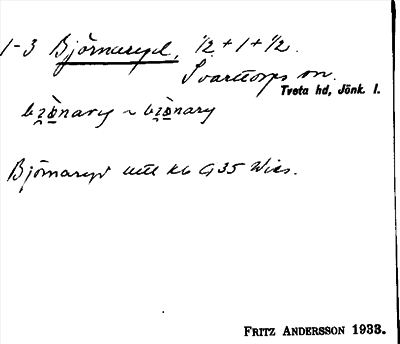 1-3 Björnaryd, 1/2 + 1 + 1/2.
Svarttorps sn.
Tveta hd, Jönk. l.
Björnaryd uttl kb G 35 Wies.
FRITZ ANDERSSON 1933.